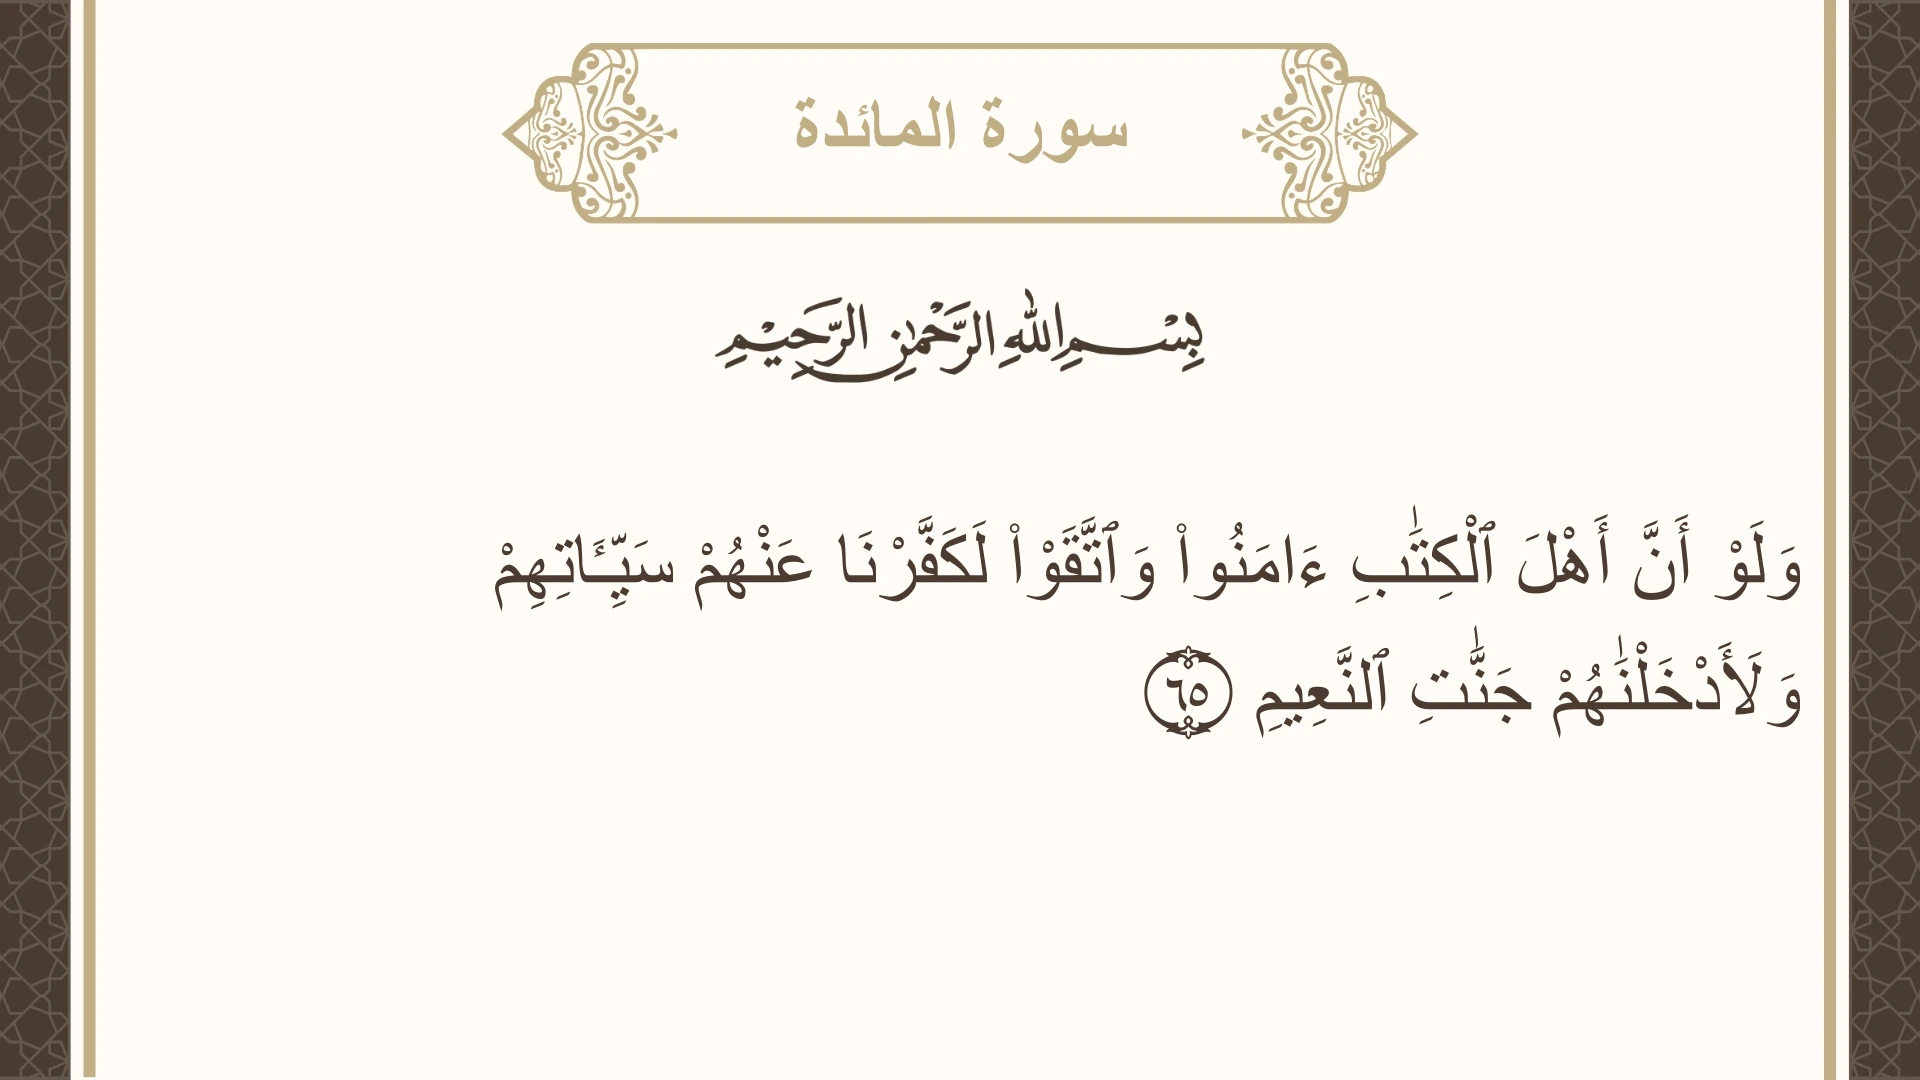 سورة المائدة
بِسْمِ اللهِ الرَّحْمٰنِ الرَّحِيْمِ
وَلَوْ أَنَّ أَهْلَ ٱلْكِتَٰبِ ءَامَنُوا۟ وَٱتَّقَوْا۟ لَكَفَّرْنَا عَنْهُمْ سَيِّـَٔاتِهِمْ
وَلَأَدْخَلْنَٰهُمْ جَنَّٰتِ ٱلنَّعِيمِ ٦٥